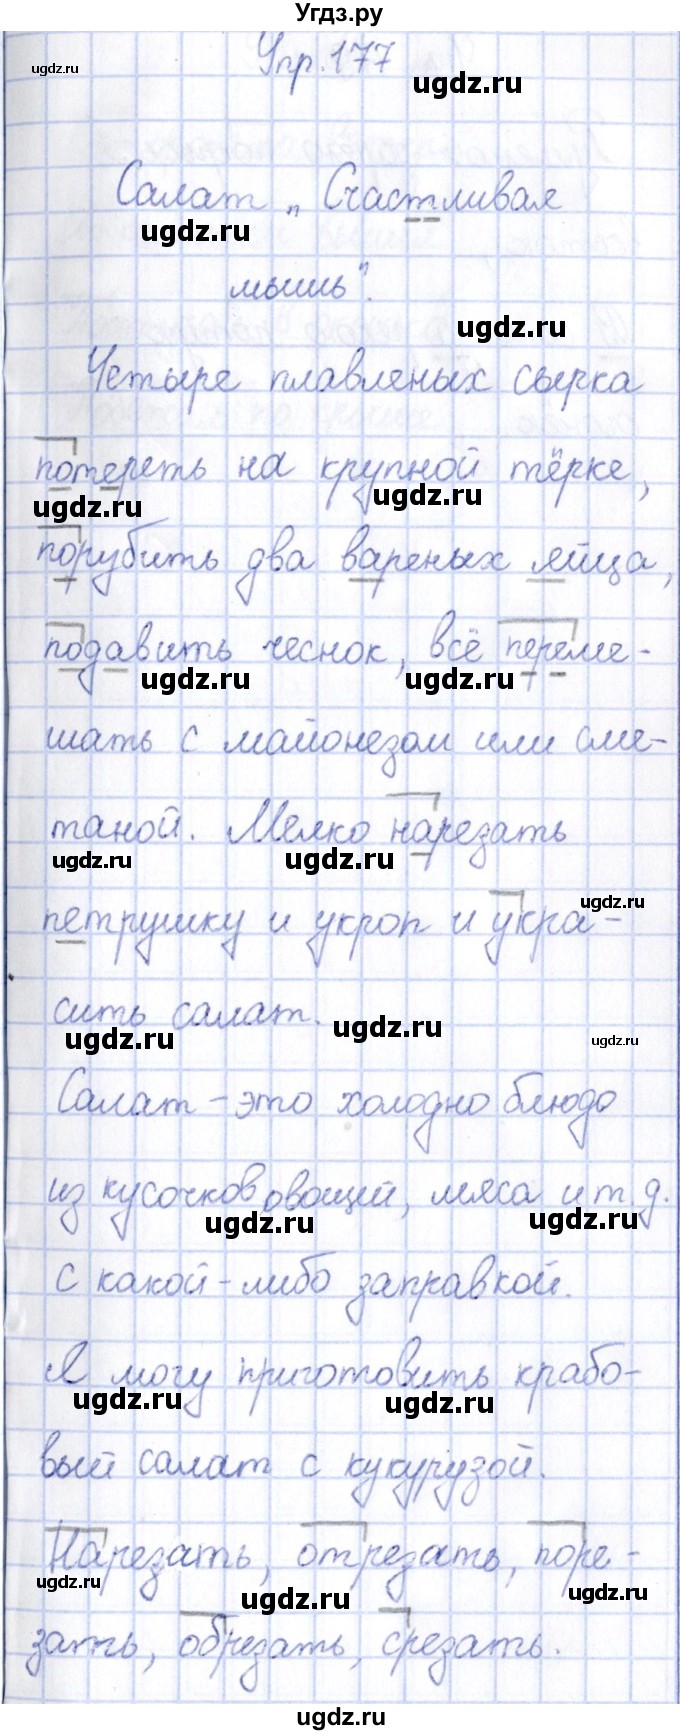 Угдз.ру
ugdz.ru
Упр. 177
ugdz.ru
Салат „ Счастливая
ugdz.ru
мышь".
ugdz.ru
Четыре плавленых сырка
потереть на крупной тёрке,
ugdz.ru ugdz.ru
порубить два вареных яйца,
подавить чеснок, всё переме-
ugdz.ru ugdz.ru
шать с майонезом или сме-
таной. Мелко нарезать
ugdz.ru ugdz.ru
ugdz.ru
петрушку и укроп и укра-
сить салат.
ugdz.ru ugdz.ru ugdz.ru
Салат – это холодно блюдо
из кусочков овощей, мяса и т.д.
ugdz.ru ugdz.ru
с какой-либо заправкой.
Я могу приготовить крабо-
ugdz.ru ugdz.ru
вый салат с кукурузой.
Нарезать, отрезать, поре-
ugdz.ru ugdz.ru ugdz.ru
зать, обрезать, срезать.
ugdz.ru